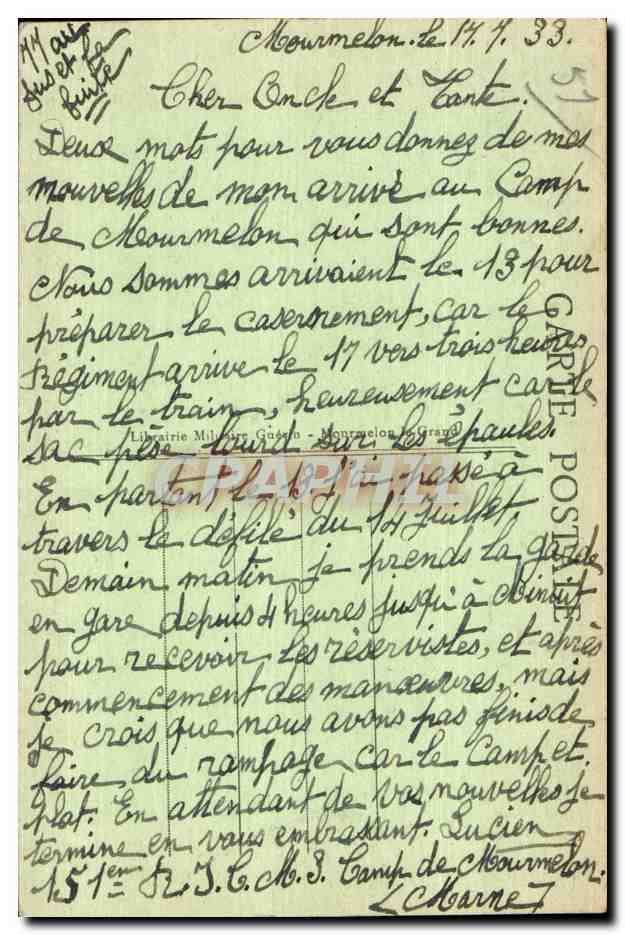 Mourmelon. le 17.7.33.
77 au
jus et la
fuite
57
Cher Oncle et Tante.
Deux mots pour vous donnez de mes
nouvelles de mon arrivé au Camp
de Mourmelon qui sont bonnes.
Nous sommes arrivaient le 13 pour
préparer le casernement, car le
Régiment arrive le 17 vers trois heures
par le train, heureusement car le
sac pèse lourd sur les épaules.
En partant le 13 j'ai passé à
travers le défilé du 14 Juillet.
Demain matin je prends la garde
en gare depuis 4 heures jusqu'à Minuit
pour recevoir les réservistes, et après
commencement des manœuvres, mais
je crois que nous avons pas finis de
faire du rampage car le Camp et
plat. En attendant de vos nouvelles je
termine en vous embrassant. Lucien
151em R.I. C.M.3 Camp de Mourmelon.
(Marne)
CARTE POSTALE
Librairie Militaire Guérin - Mourmelon-le-Grand
CPAPHIL